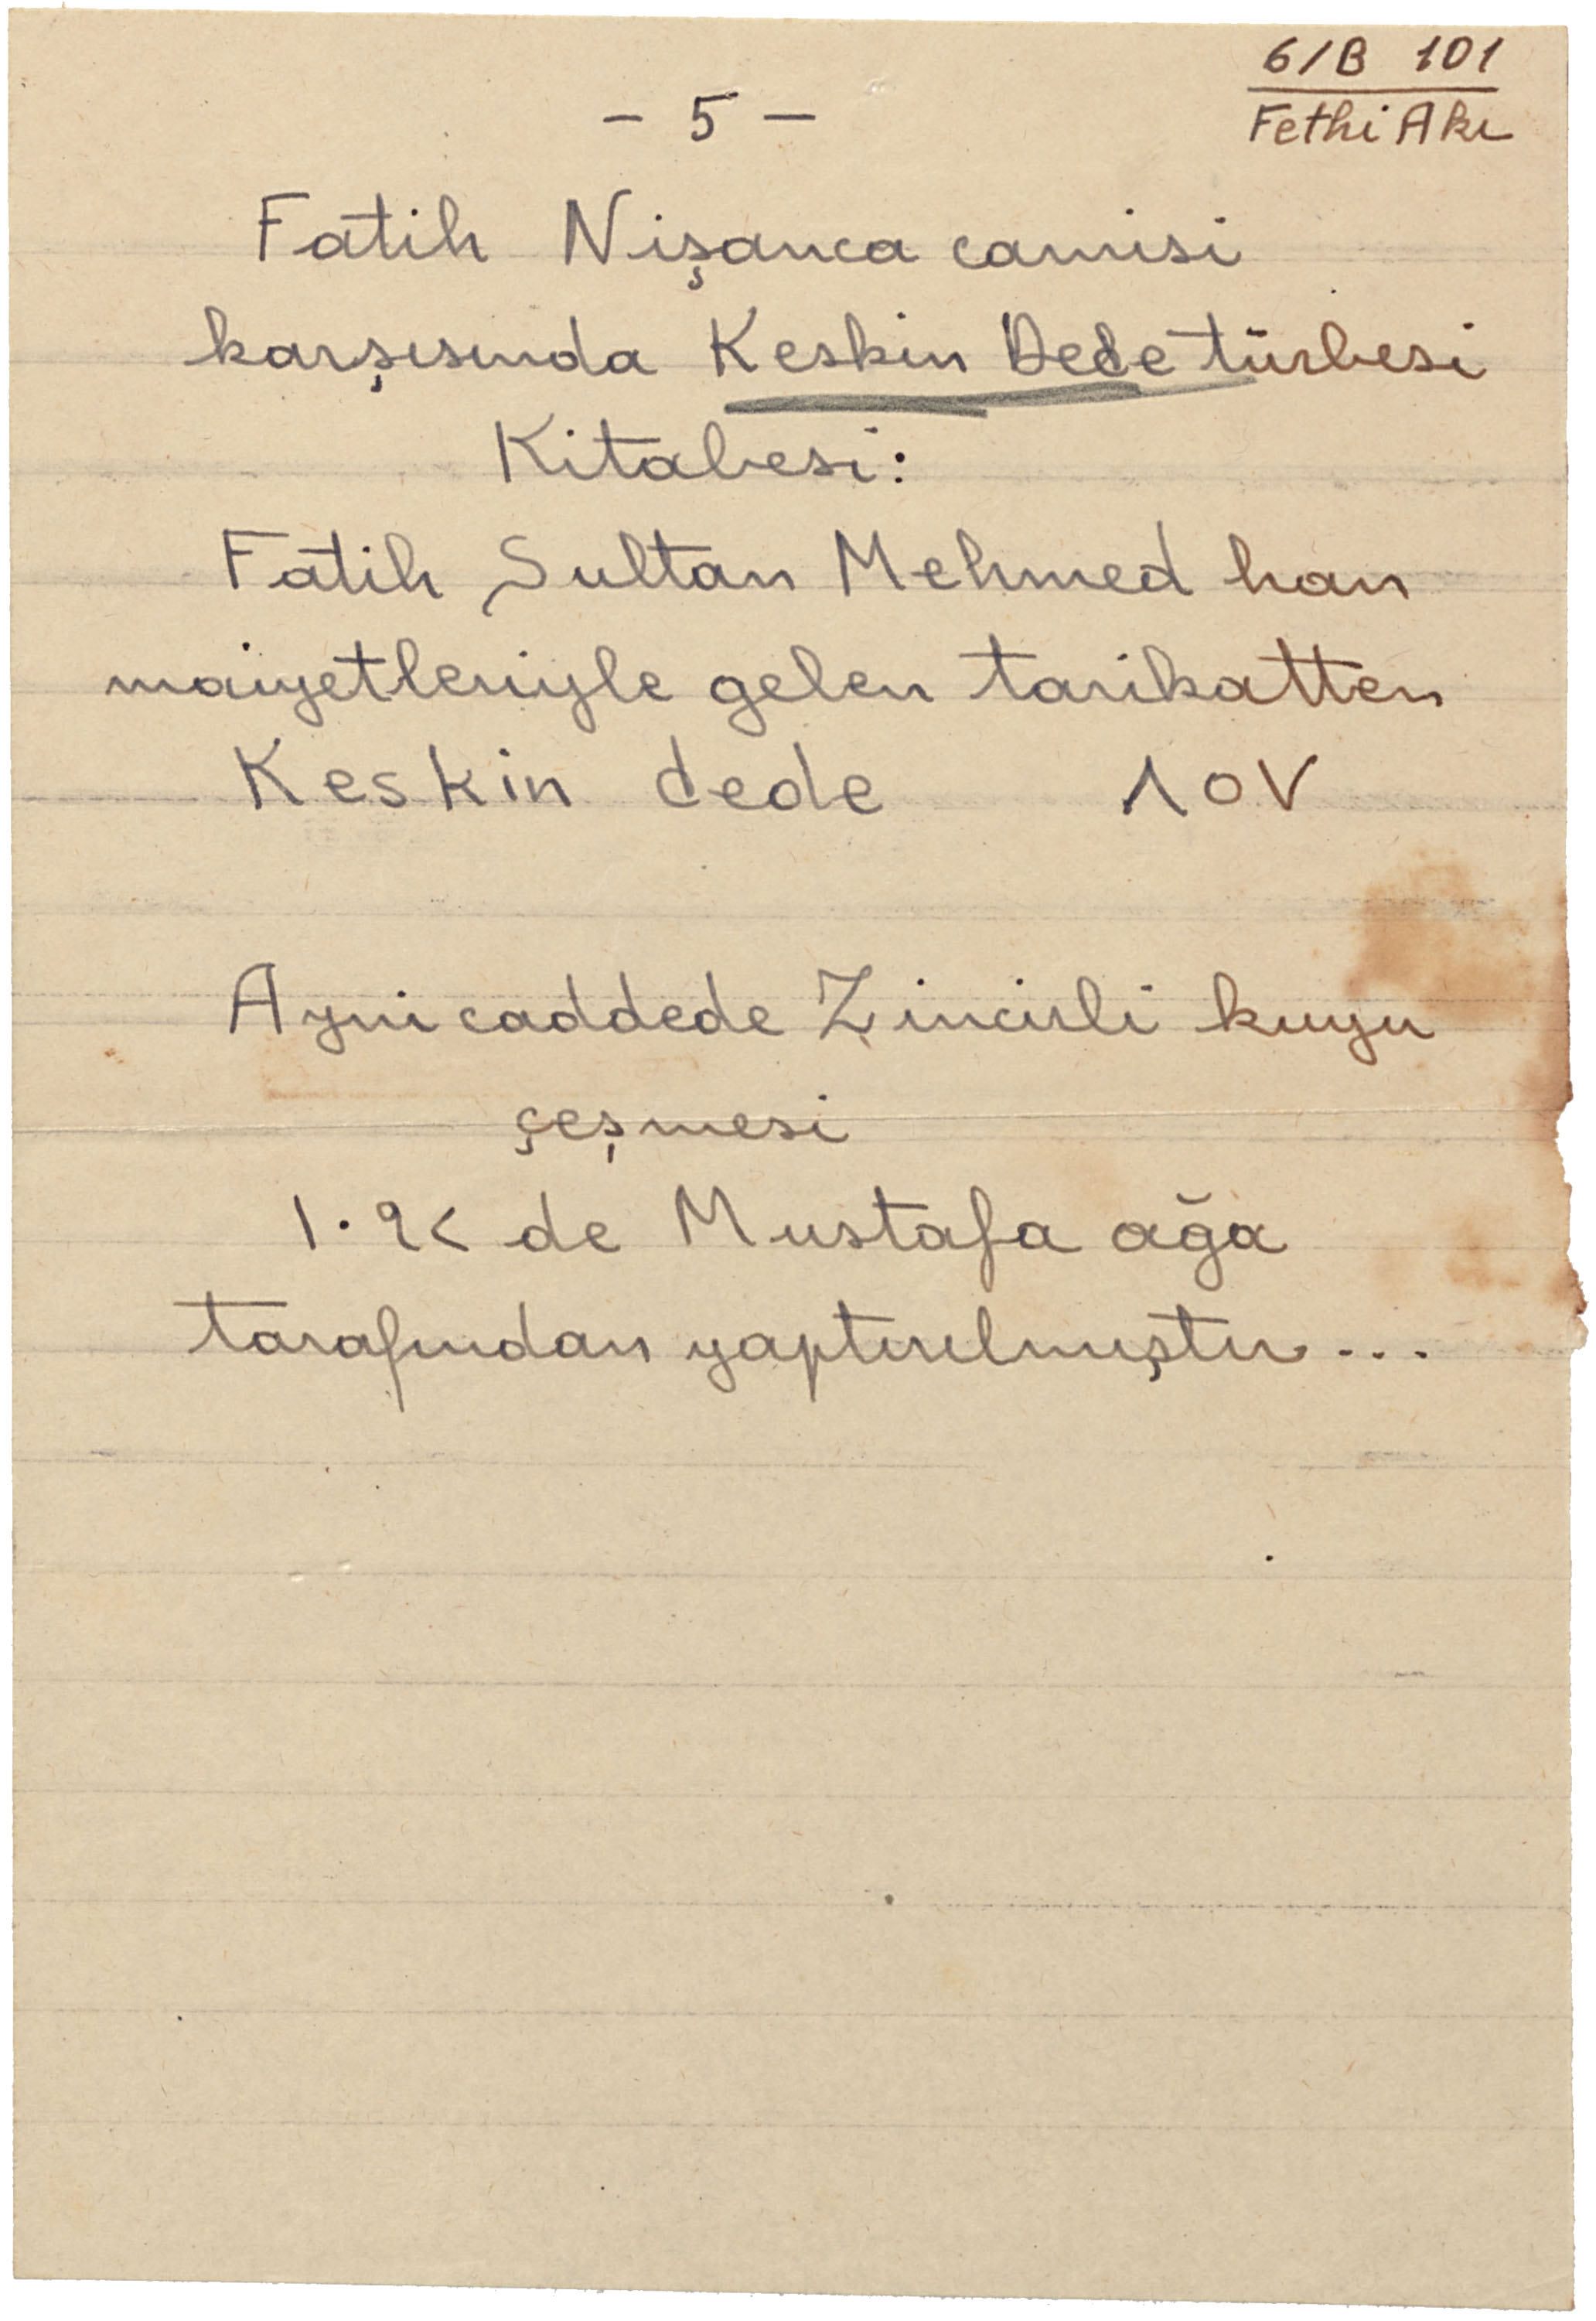 6/B 101
Fethi Akı
- 5 -
Fatih Nişanca camisi
karşısında Keskin Dede türbesi
Kitabesi:
Fatih Sultan Mehmed han
maiyetleriyle gelen tarikatten
Keskin dede ٨٥٧
Ayni caddede Zincirli kuyu
çeşmesi
١٠٩٤ de Mustafa ağa
tarafından yaptırılmıştır...